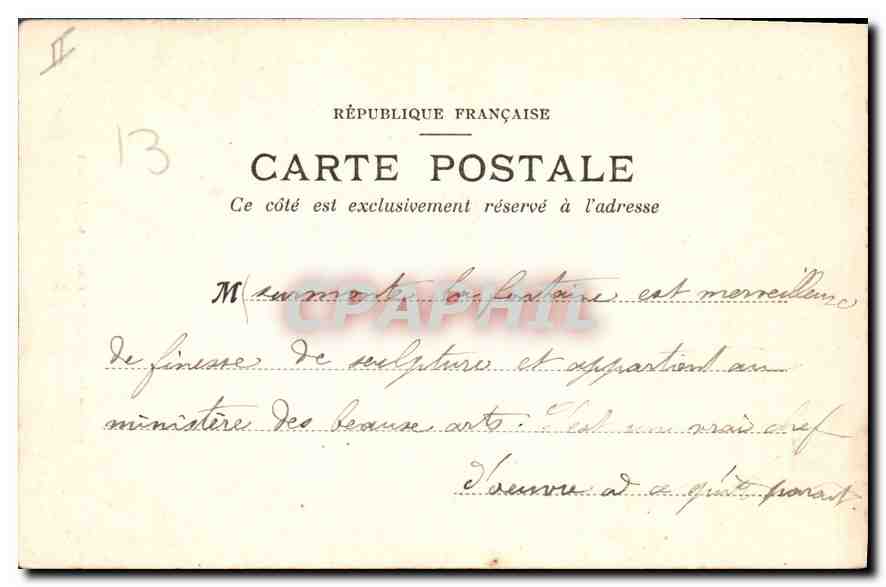 II
13
RÉPUBLIQUE FRANÇAISE
CARTE POSTALE
Ce côté est exclusivement réservé à l'adresse
CPAPHIL
M (surmonte la fontaine est merveilleuse
de finesse de sculpture et appartient au
ministère des beause arts. C'est un vrai chef
d'oeuvre a ce qu'il parait.